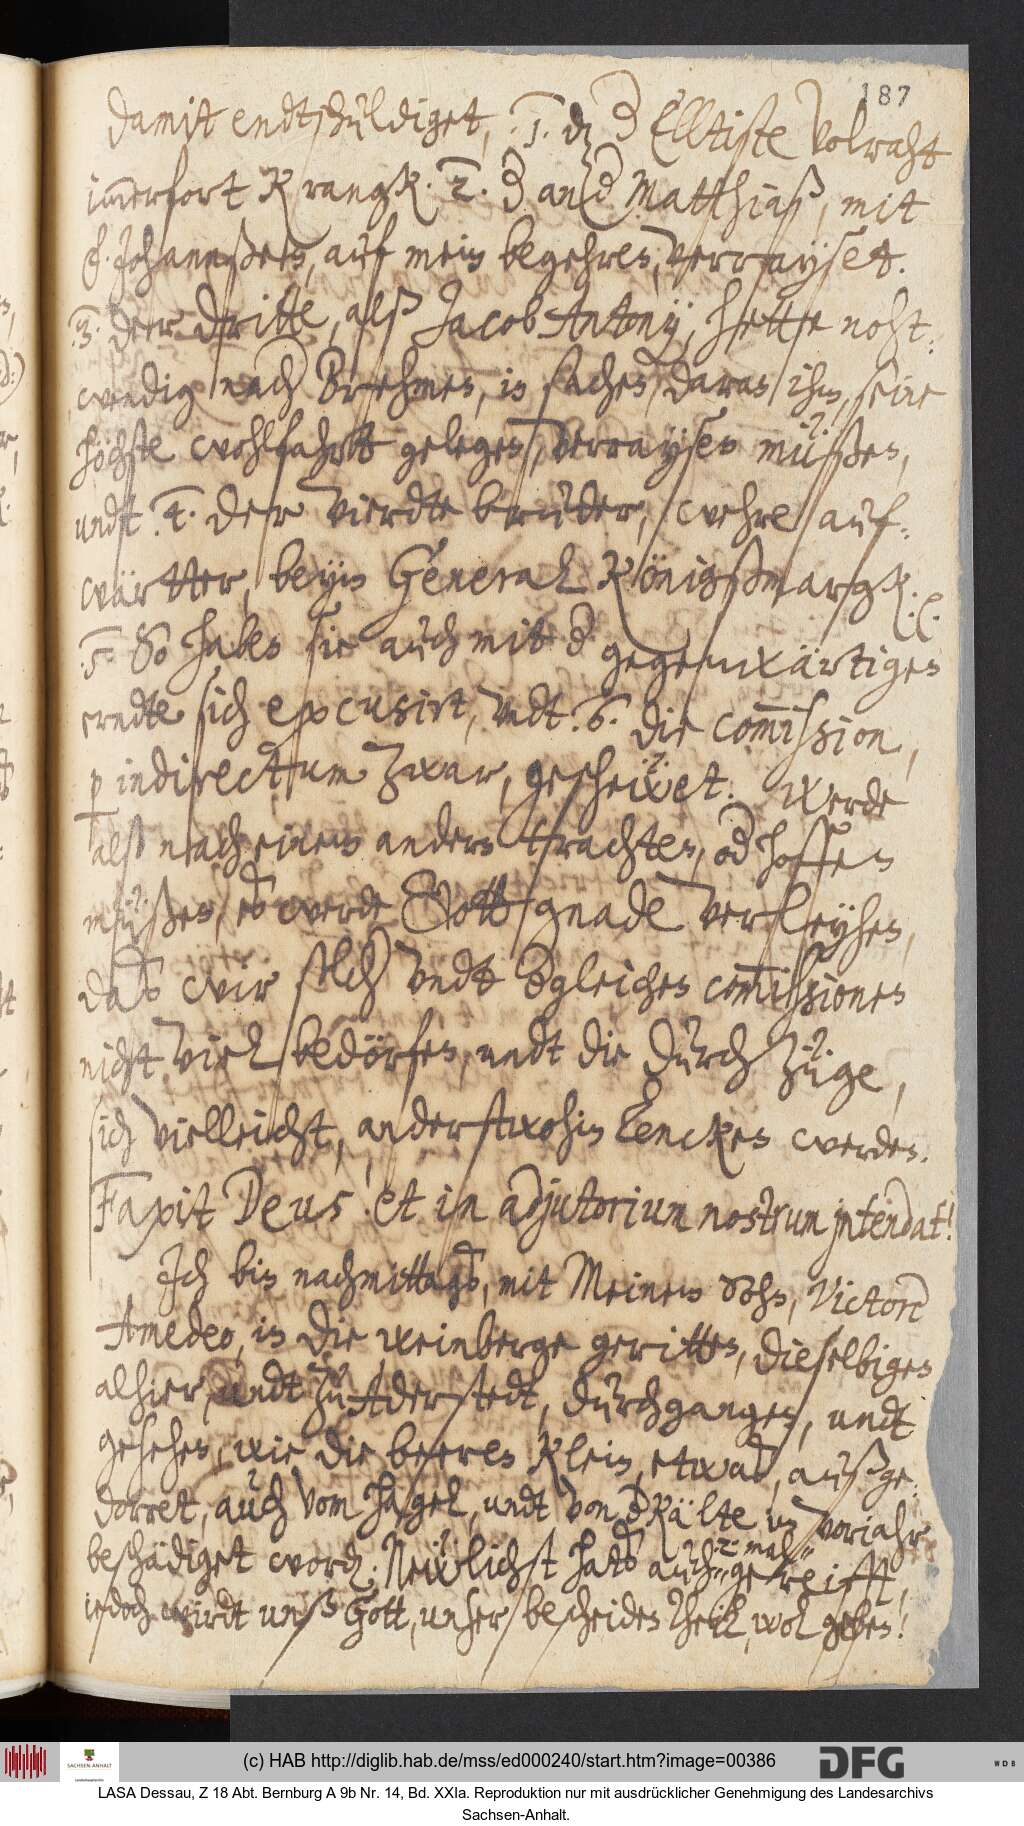 187
damit endtschüldiget, .1. dz d Elltiste Volraht
im̄erfort Krangk. .2. d and Matthiaß, mit
F. Johannßen, auf mein begehren, verrayset.
.3. deer dritte, alß Jacob Antony, hette noht-
wendig nach Brehmen, in sachen, daran ihm, seine
höchste wohlfahrtt gelegen, verraysen müßen,
undt .4. der vierdte bruder, wehre auf-
wärtter, beym General Königßmargk. ⟨⟨
.5. So haben sie auch mit d gegenwärtigen
erndte sich excusirt, vndt .6. die com̄ission,
p indirectum zwar, gescheẅet. Werde
alß nach einem andern trachten, od hoffen
müßen, es werde Gott gnade verleyhen,
das wir solch vndt dgleichen com̄issionen
nicht viel bedörfen, undt die durchzüge,
sich vielleicht, anderstwohin lencken werden.
Faxit Deus et in adjutorium nostrum intendat!
Ich bin nachmittags, mit Meinem Sohn, Victorio
Amedeo, in die weinberge geritten, dieselbigen
alhier, undt zu Aderstedt, durchgangen, undt
gesehen, wie die beeren klein, etwas, außge-
dorret, auch vom hagel, undt von d Kälte im vorjahr
beschädiget word. Neẅlichst hats auch 2. mal gereifft,
iedoch wirdt unß Gott, unser bescheiden theil, wol geben!
(c) HAB http://diglib.hab.de/mss/ed000240/start.htm?image=00386
SACHSEN-ANHALT
DFG
WDB
LASA Dessau, Z 18 Abt. Bernburg A 9b Nr. 14, Bd. XXIa. Reproduktion nur mit ausdrücklicher Genehmigung des Landesarchivs
Sachsen-Anhalt.